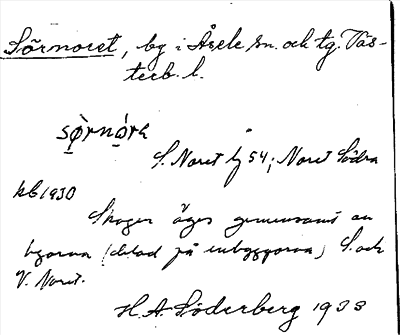 Sörnoret, by i Åsele sn. och tg. Väs-
terb. l.
sø̀rnórh
S. Noret by 54; Noret Södra
kb 1930
Skogen äges gemensamt av
byarna (delad på inbyggarna) S. och
V. Noret.
H.A. Söderberg 1933